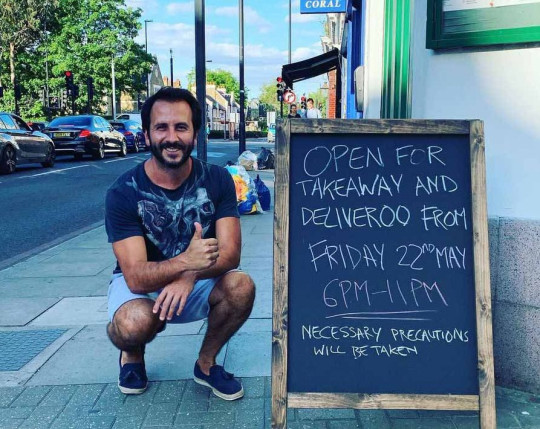 CORAL
OPEN FOR
TAKEAWAY AND
DELIVEROO FROM
FRIDAY 22ND MAY
6PM-11PM
NECESSARY PRECAUTIONS
WILL BE TAKEN